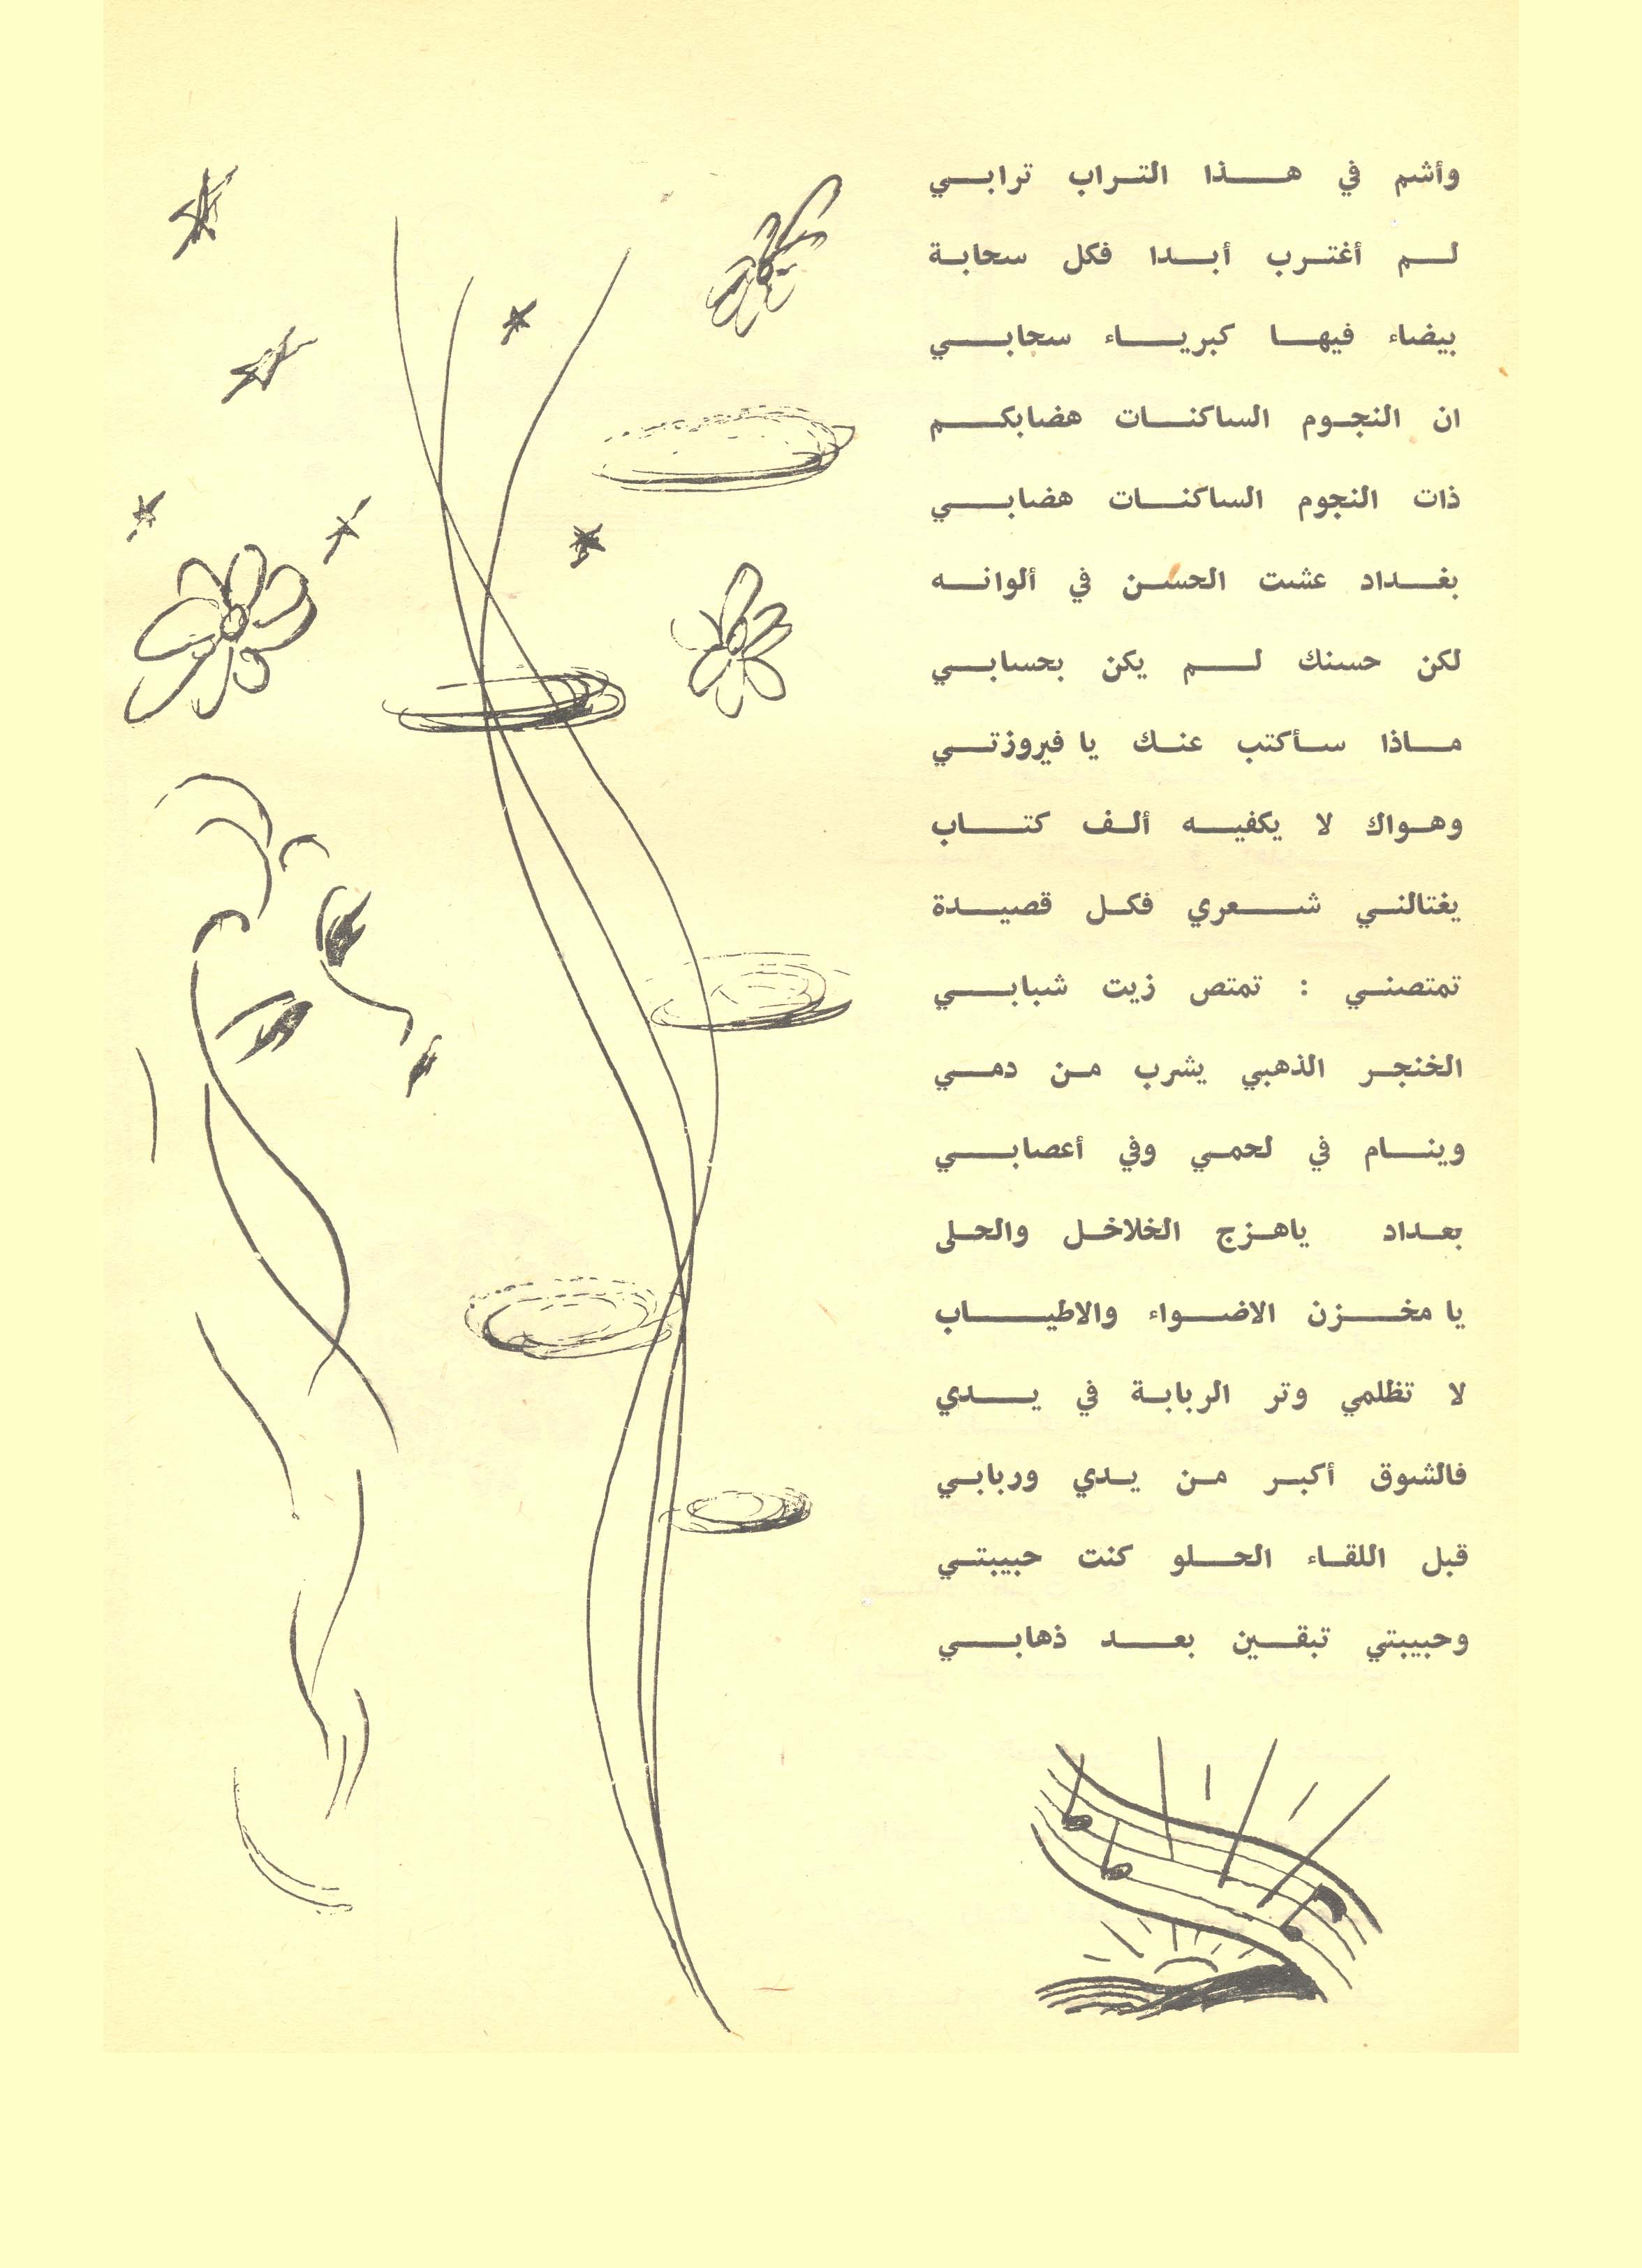 وأشم في هذا التراب ترابي
لم أغترب أبدا فكل سحابة
بيضاء فيها كبرياء سحابي
ان النجوم الساكنات هضابكم
ذات النجوم الساكنات هضابي
بغداد عشت الحسن في ألوانه
لكن حسنك لم يكن بحسابي
ماذا سأكتب عنك يا فيروزتي
وهواك لا يكفيه ألف كتاب
يغتالني شعري فكل قصيدة
تمتصني : تمتص زيت شبابي
الخنجر الذهبي يشرب من دمي
وينام في لحمي وفي أعصابي
بعداد ياهزج الخلاخل والحلى
يا مخزن الاضواء والاطياب
لا تظلمي وتر الربابة في يدي
فالشوق أكبر من يدي وربابي
قبل اللقاء الحلو كنت حبيبتي
وحبيبتي تبقين بعد ذهابي